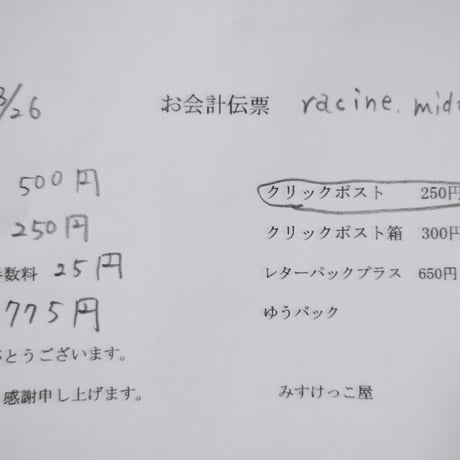 3/26 お会計伝票 racine.mid
500円 クリックポスト 250円
250円 クリックポスト箱 300円
手数料 25円 レターパックプラス 650円
775円 ゆうパック
とうございます。
感謝申し上げます。 みすけっこ屋